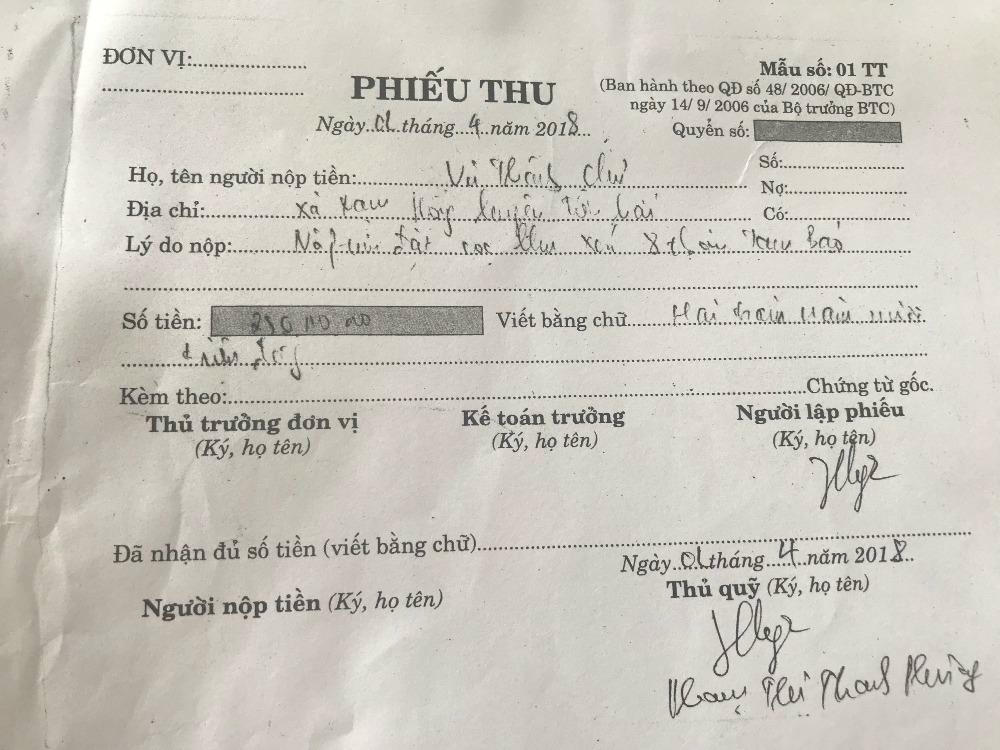 ĐƠN VỊ:....................
PHIẾU THU
Ngày..01.tháng...4..năm 2018...
Mẫu số: 01 TT
(Ban hành theo QĐ số 48/ 2006/ QĐ-BTC
ngày 14/ 9/ 2006 của Bộ trưởng BTC)
Quyển số:
Số:....................
Nợ:....................
Có:....................
Họ, tên người nộp tiền:.......... Vũ
Địa chỉ:.......... xã
Lý do nộp:.......... Nộp tiền đặt cọc
Số tiền:
Viết bằng chữ.......... Hai trăm năm mươi
triệu đồng
Kèm theo:....................Chứng từ gốc.
Thủ trưởng đơn vị
(Ký, họ tên)
Kế toán trưởng
(Ký, họ tên)
Người lập phiếu
(Ký, họ tên)
Đã nhận đủ số tiền (viết bằng chữ)....................
Ngày..01.tháng....4..năm 2018..
Người nộp tiền (Ký, họ tên)
Thủ quỹ (Ký, họ tên)
Thị Thanh